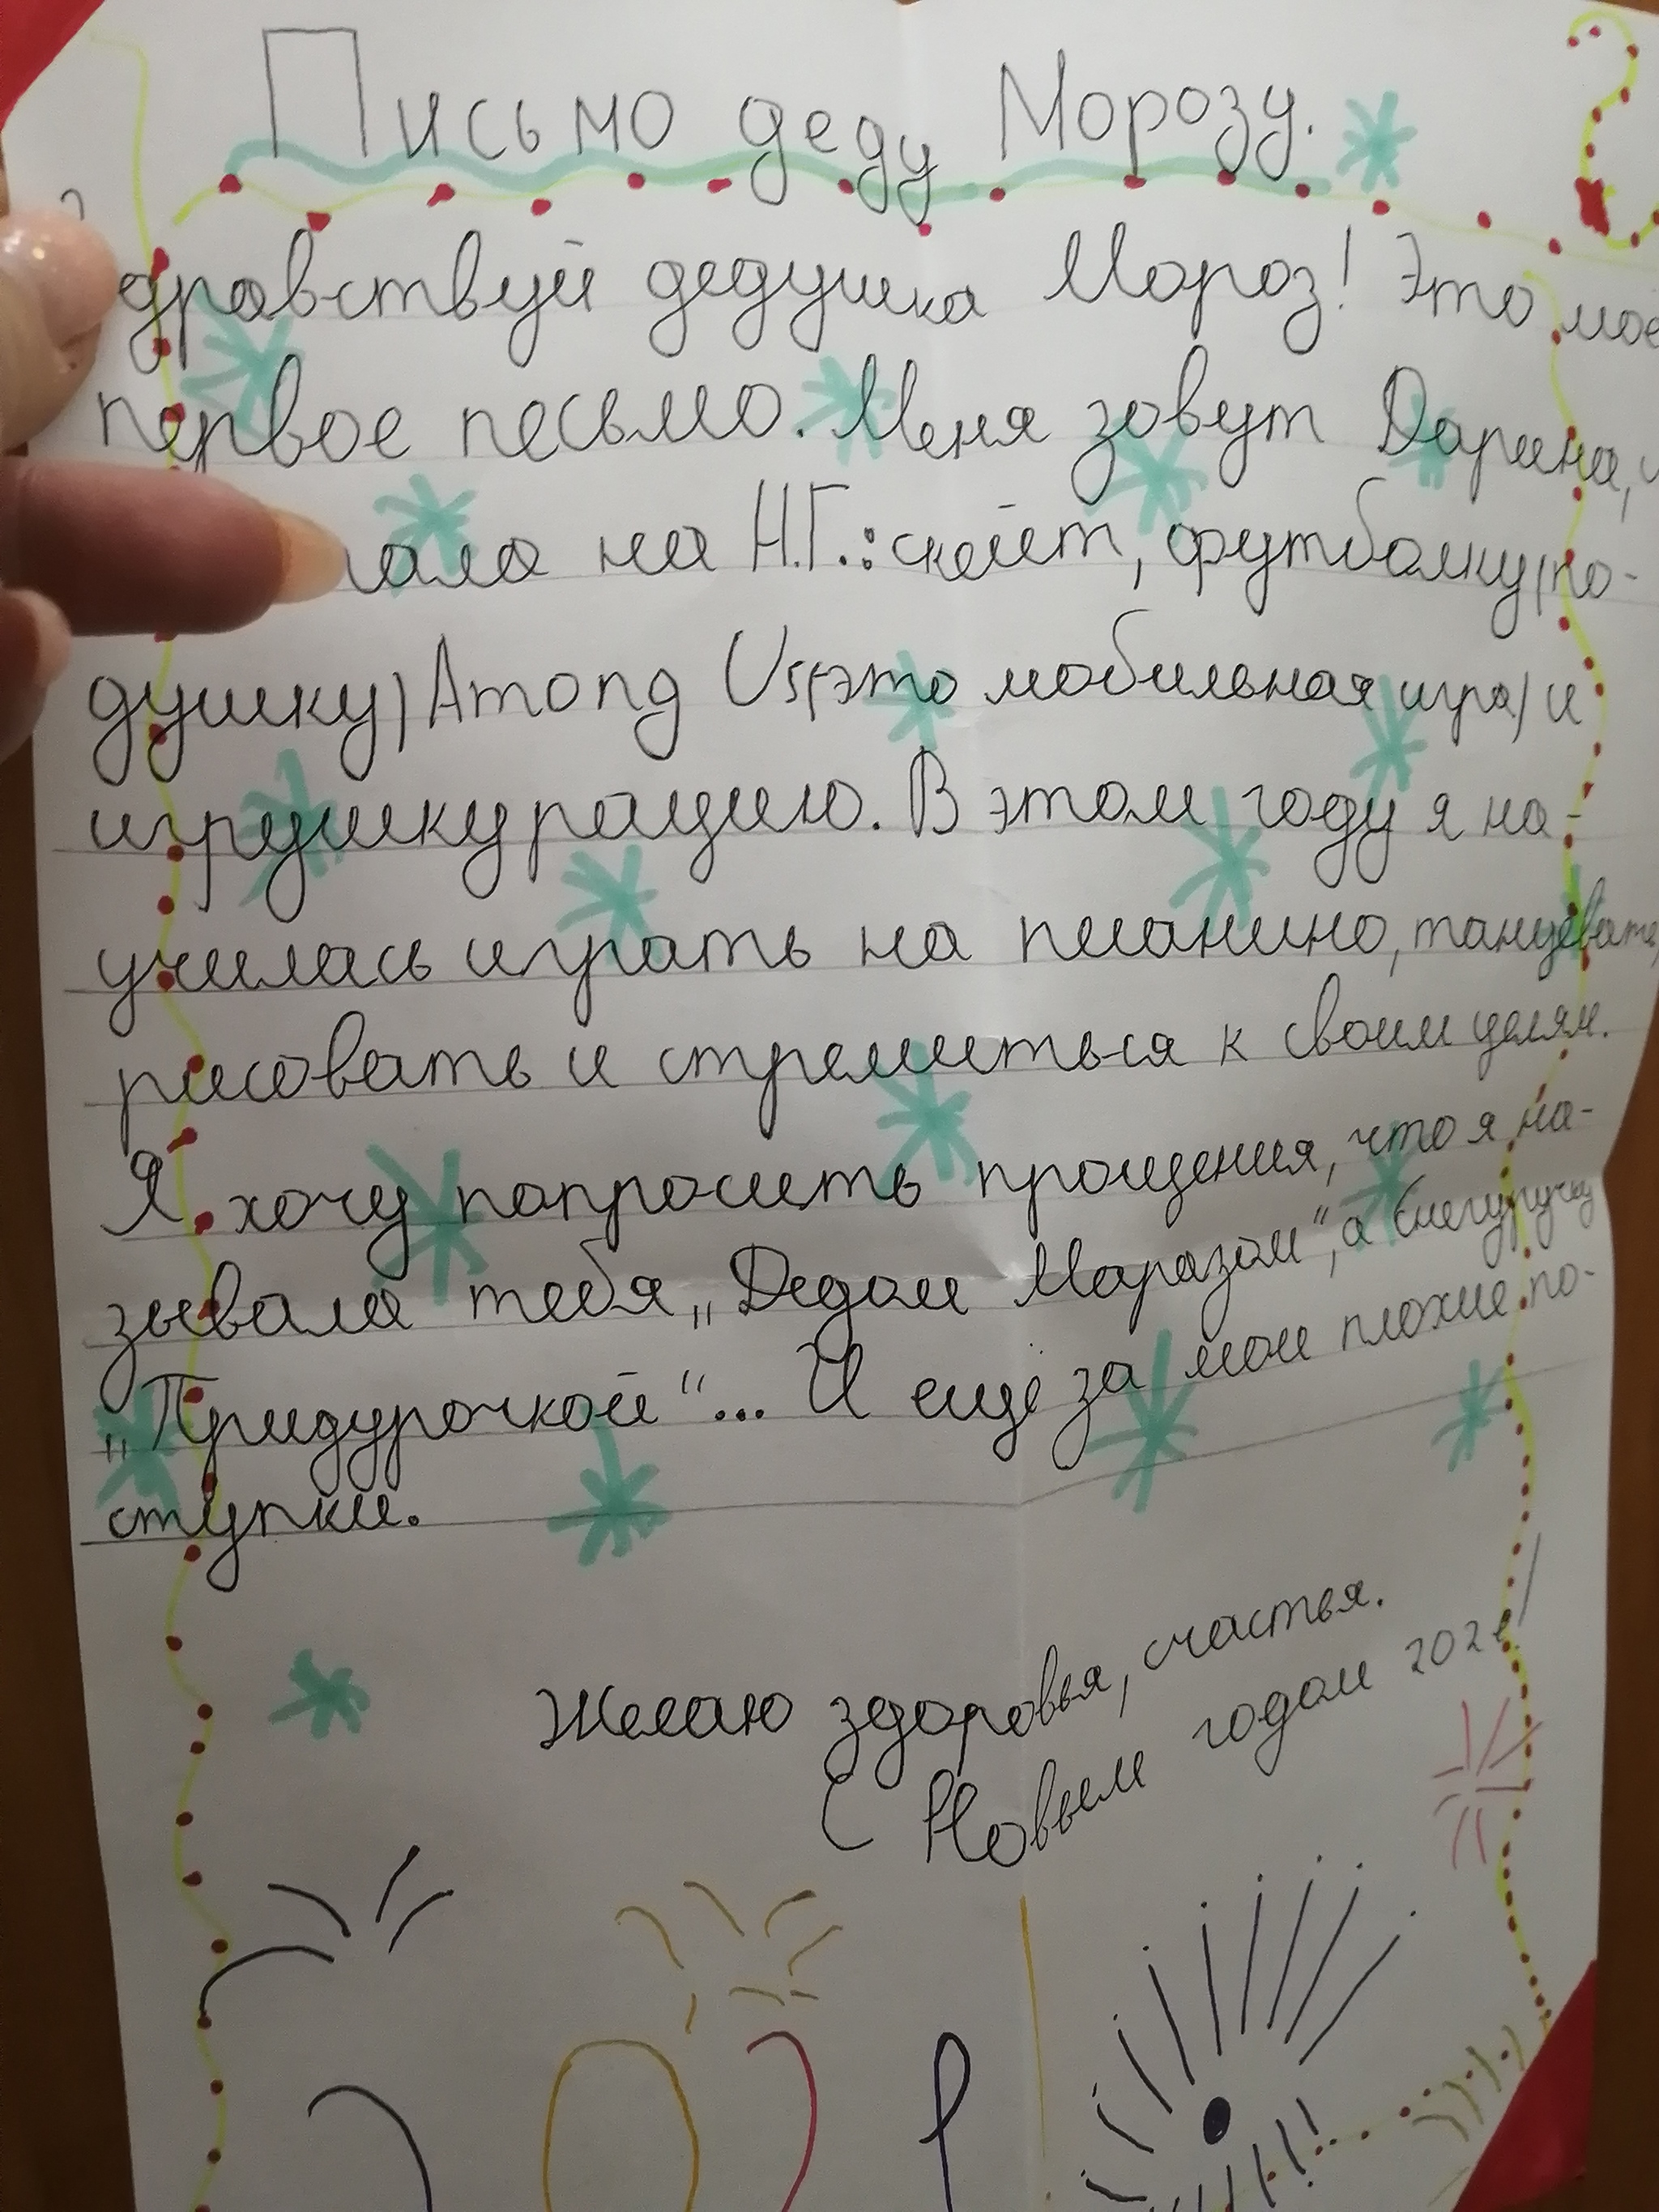 Письмо деду Морозу.
Здравствуй дедушка Мороз! Это мое
первое песьмо. Меня зовут Дарина,
на Н.Г.: скейт, футболку, по-
душку, Among Us(это мобильная игра) и
игрушку рацию. В этом году я на-
училась играть на пианино, танцевать,
рисовать и стремиться к своим целям.
Я хочу попросить прощения, что я на-
зывала тебя „Дедом Маразом“, а Снегуручку
„Придурочкой“... И ещё за мои плохие по-
ступки.
Желаю здоровья, счастья.
С Новым годом 2021!
202